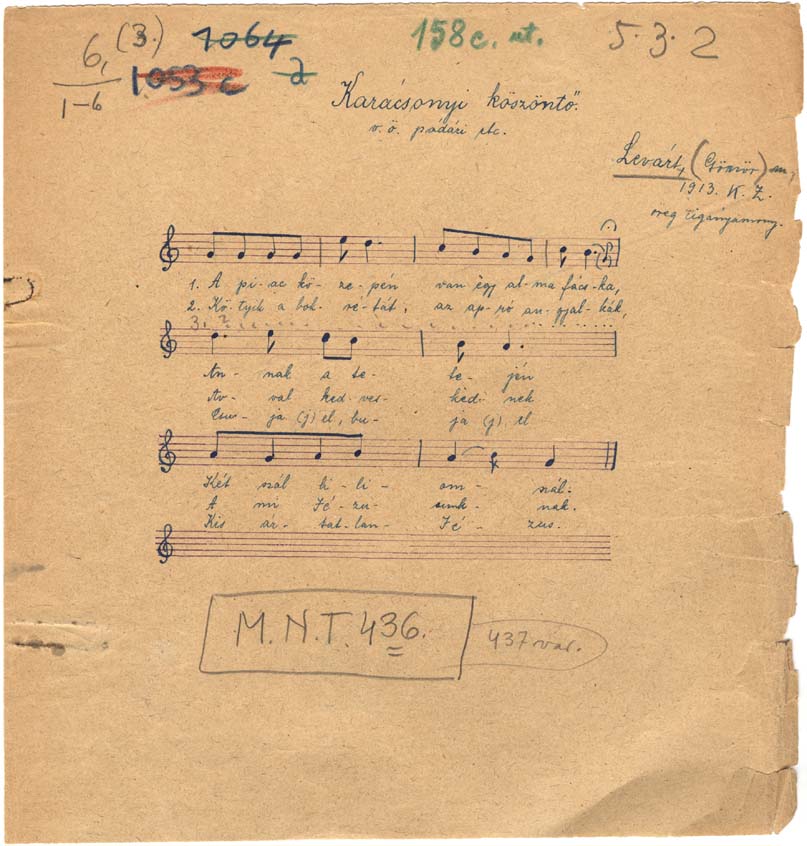 6, (3.) 1064 158c. ut. 5.3.2
1-6 1053 c 2
Karácsonyi köszöntő.
v.ö. pádári stc.
Levárt, (Gömör) m,
1913. K. Z.
öreg cigányasszony.
1. A pi-ac kö-ze-pén van egy al-ma fács-ka,
2. Kö-tyik a bok-ré-tát, az ap-ró an-gyal-kák,
3. ?
An-nak a te-te-jén
Av-val ked-ves-ked-nek
Csu-ja (j) el, bu-ja (j) el
Két szál li-li-om-szál.
A mi Jé-zu-sunk-nak.
Kis ár-tat-lan Jé-zus.
M.N.T. 436.
437 var.